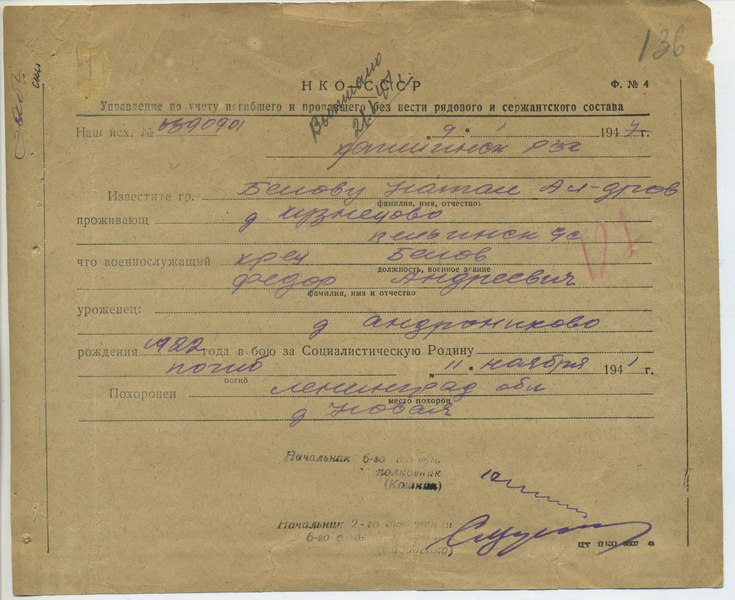 136
НКО-СССР
Ф. № 4
Управление по учету погибшего и пропавшего без вести рядового и сержантского состава
Выписано
Наш исх. № 6390901 9 1 1947 г.
РВК
Известите гр. Белову Натал Ал-дров
фамилия, имя, отчество)
проживающ д Кузнецово
с/с
121
что военнослужащий кр-ец Белов
должность, военное звание
Федор Андреевич
фамилия, имя и отчество
уроженец:
д Андрониково
рождения 1922 года в бою за Социалистическую Родину
погиб „11" ноября 1941 г.
погиб
Похоронен Ленинград обл
место похорон
д Новая
Начальник 6-го отдела
полковник
(Кошкин)
Начальник 2-го отделения
6-го отдела
ЦТ НКО